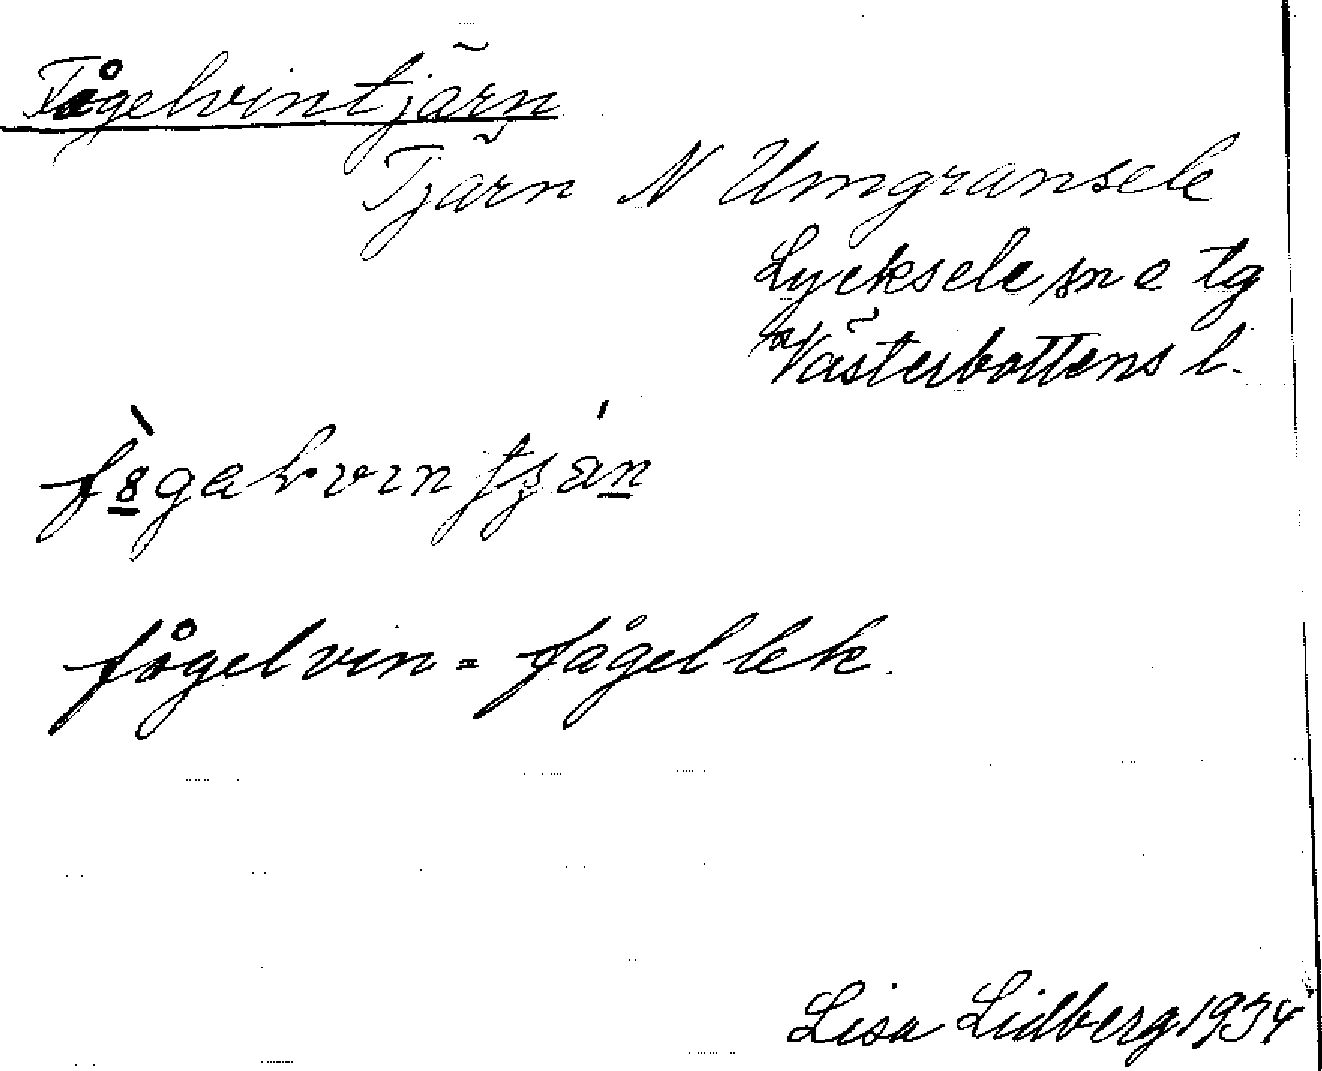 Fågelvintjärn
Tjärn N Umgransele
Lyksele sn o tg
Västerbottens l.
fågelvin = fågellek.
Lisa Lidberg 1934